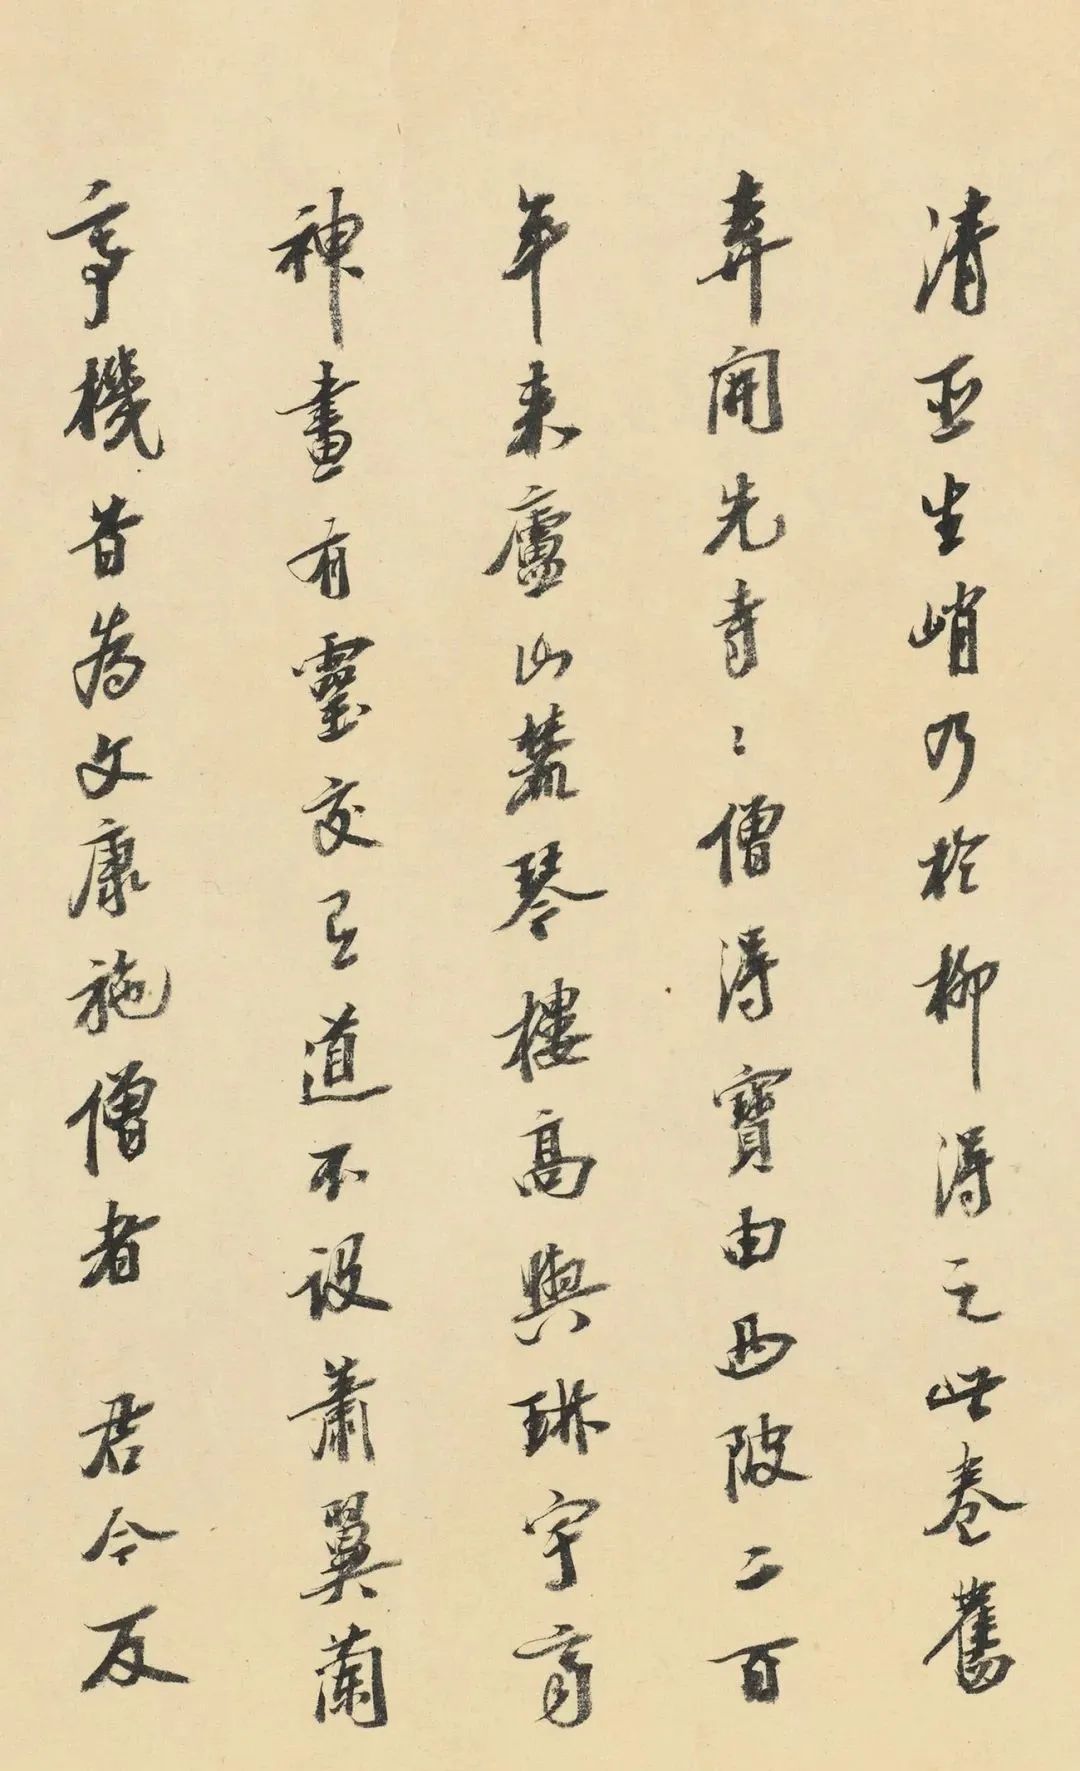 清生峭乃於柳得之此卷舊
弆開先寺〻僧得寶由西陂二百
年来廬山麓琴樓高與琳宇齊
神畫有靈交以道不設蕭翼蘭
亭機昔為文康施僧者 君今反